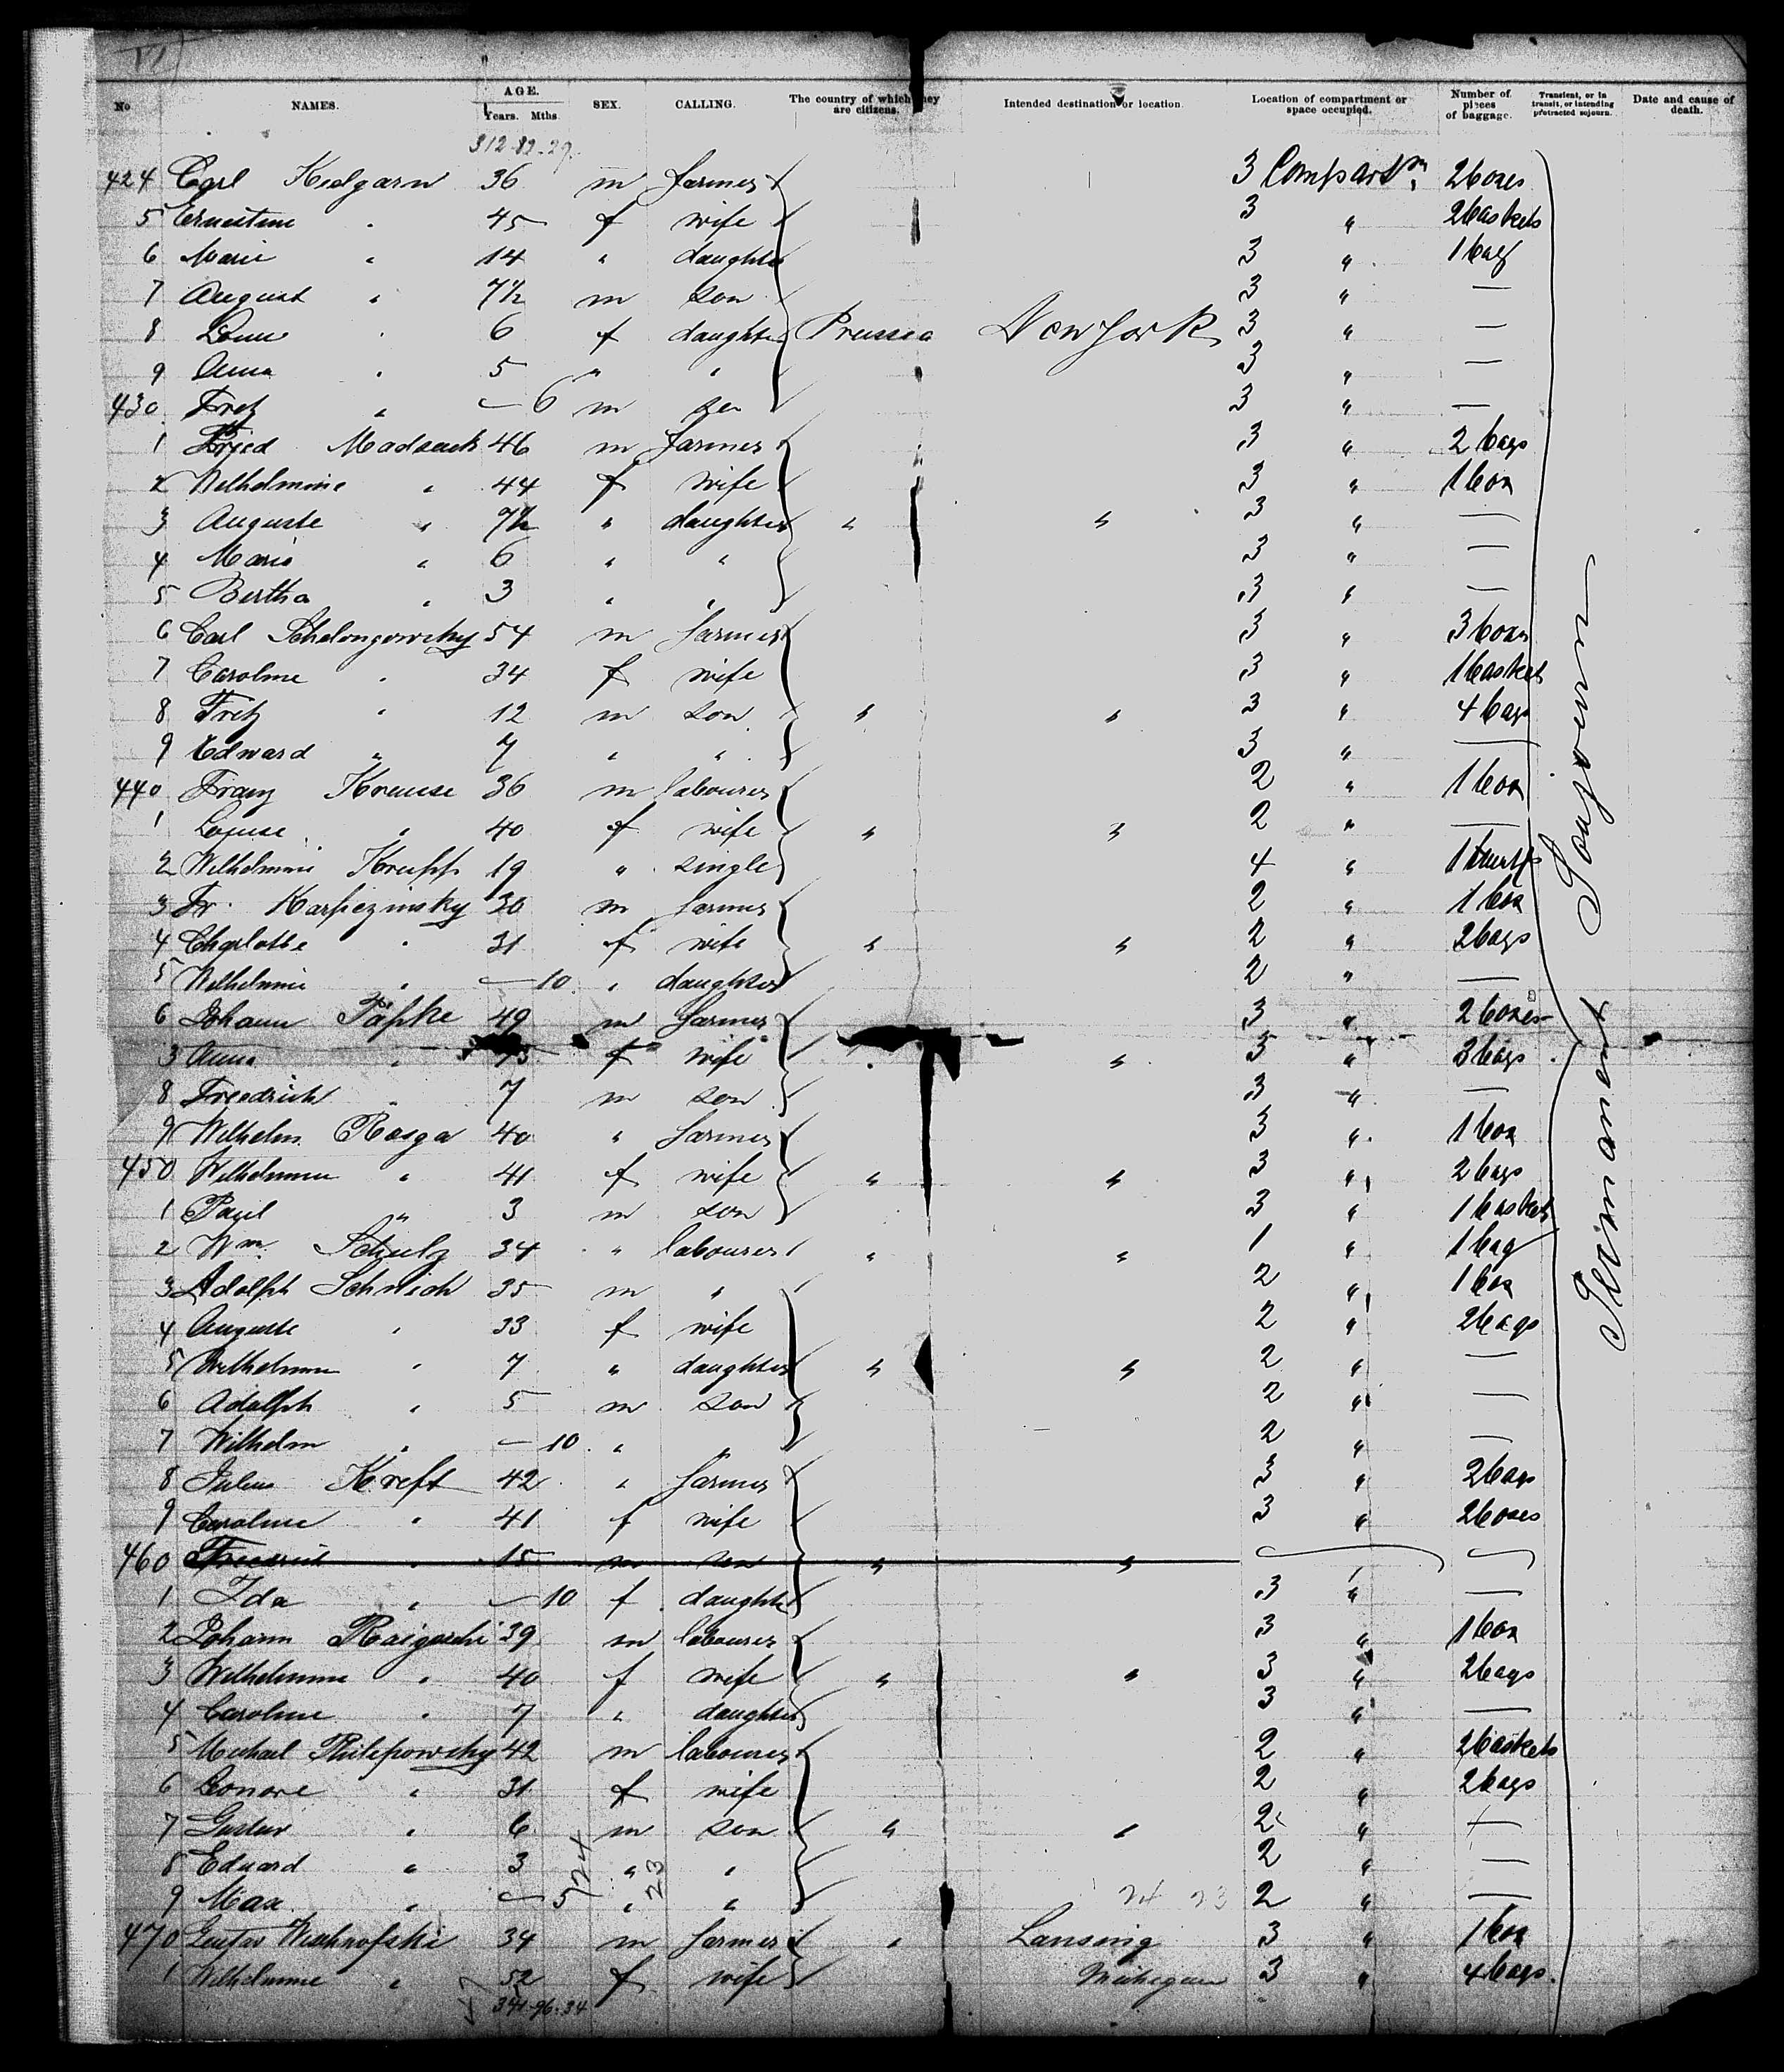 No NAMES. AGE. Years. Mths. SEX. CALLING. The country of which they are citizens. Intended destination or location. Location of compartment or space occupied. Number of pieces of baggage. Transient, or in transit, or intending protracted sojourn. Date and cause of death.
312-82-29
424 Carl Kielgarn 36 m farmer 3 Compartm. 2 boxes
5 Ernestine " 45 f wife 3 " 2 baskets
6 Marie " 14 " daughter 3 " 1 bag
7 August " 7½ m son 3 " —
8 Louise " 6 f daughter Prussia New York 3 " —
9 Anna " 5 " " 3 " —
430 Fritz " — 6 m son 3 " —
1 Fried Madsack 46 m farmer 3 " 2 bags
2 Wilhelmine " 44 f wife 3 " 1 box
3 Auguste " 7½ " daughter " " 3 " —
4 Marie " 6 " " 3 " —
5 Bertha " 3 " " 3 " —
6 Carl Schelongowsky 54 m farmer 3 " 3 boxes
7 Caroline " 34 f wife 3 " 1 basket
8 Fritz " 12 m son " " 3 " 4 bags
9 Edward " 7 " " 3 " —
440 Franz Krause 36 m labourer 2 " 1 box
1 Louise " 40 f wife " " 2 " —
2 Wilhelmine Krupp 19 " single 4 " 1
3 Fr. Karpiezinsky 30 m farmer 2 " 1 box
4 Charlotte " 31 f wife " " 2 " 2 bags
5 Wilhelmine " — 10 " daughter 2 " —
6 Johann Papke 49 m farmer 3 " 2 boxes
3 Anna " f wife " " 3 " 3 bags
8 Friedrich " 7 m son 3 " —
9 Wilhelm Rosga 40 " farmer 3 " 1 box
450 Wilhelmine " 41 f wife " " 3 " 2 bags
1 Paul " 3 m son 3 " 1 basket
2 Wm. Schulz 34 " labourer " " 1 " 1 bag
3 Adolph Schwich 35 m " 2 " 1 box
4 Auguste " 33 f wife 2 " 2 bags
5 Wilhelmine " 7 " daughter " " 2 " —
6 Adolph " 5 m son 2 " —
7 Wilhelm " — 10 " " 2 " —
8 Julius Kreft 42 " farmer 3 " 2 bags
9 Caroline " 41 f wife 3 " 2 boxes
460 Friedrich " 15 m son " "
1 Ida " — 10 f daughter 3 " —
2 Johann Raiguschi 39 m labourer 3 " 1 box
3 Wilhelmine " 40 f wife " " 3 " 2 bags
4 Caroline " 7 " daughter 3 " —
5 Michael Philipowsky 42 m labourer 2 " 2 baskets
6 Leonore " 31 f wife 2 " 2 bags
7 Gustav " 6 m son " " 2 " —
8 Eduard " 3 " " 2 " —
9 Max " — 5 " " 24 23 2 " —
470 Gustav Wischnofski 34 m farmer " Lansing 3 " 1 box
1 Wilhelmine " 52 f wife Michigan 3 " 4 bags.
341-96-34
524
23
Permanent Soujourn